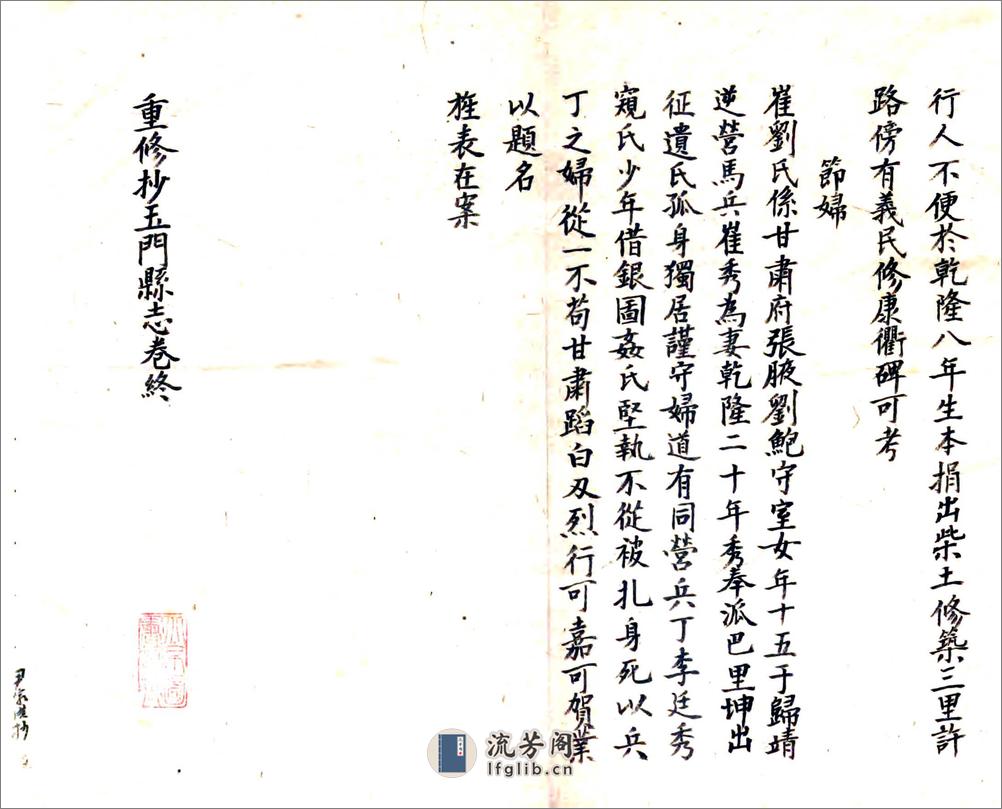 行人不便於乾隆八年生本捐出柴土修築三里許
路傍有義民修康衢碑可考
節婦
崔劉氏係甘肅府張腋劉鮑守室女年十五于歸靖
逆營馬兵崔秀為妻乾隆二十年秀奉派巴里坤出
征遺氏孤身獨居謹守婦道有同營兵丁李廷秀
窺氏少年借銀圖姦氏堅執不從被扎身死以兵
丁之婦從一不苟甘肅蹈白刄烈行可嘉可賀業
以題名
旌表在案
重修抄玉門縣志卷終
流芳阁
lfglib.cn